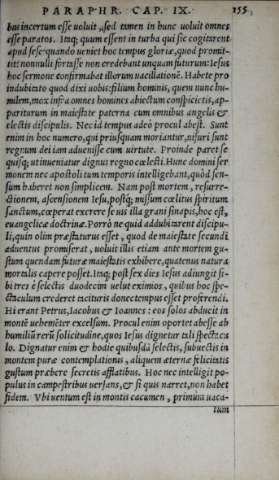 PARAPHR. CAP. IX. 155
bus incertum esse uoluit, sed tamen in hunc uoluit omnes
esse paratos. Itaq; quum essent in turba qui sic cogitarent
apud sese: quando ueniet hoc tempus gloriæ, quod promit-
tit: nonnulli fortasse non credebant unquam futurum: Iesus
hoc sermone confirmabat illorum uacillationē. Habete pro
indubitato quod dixi uobis: filium hominis, quem nunc hu-
milem, mox infra omnes homines abiectum conspicietis, ap-
pariturum in maiestate paterna cum omnibus angelis &
electis discipulis. Nec id tempus adeò procul abest. Sunt
enim in hoc numero, qui priusquam moriantur, uisuri sunt
regnum dei iam aduenisse cum uirtute. Proinde paret se
quisq; ut inueniatur dignus regno cœlesti. Hunc domini ser
monem nec apostoli tum temporis intelligebant, quòd sen-
sum haberet non simplicem. Nam post mortem, resurre-
ctionem, ascensionem Iesu, postq; missum cœlitus spiritum
sanctum, cœperat exerere se uis illa grani sinapis, hoc est,
euangelicæ doctrinæ. Porrò ne quid addubitarent discipu-
li, quin olim præstaturus esset, quod de maiestate secundi
aduentus promiserat, uoluit illis etiam ante mortem gu-
stum quendam futuræ maiestatis exhibere, quatenus natura
mortalis capere posset. Itaq; post sex dies Iesus adiungit si-
bi tres è selectis duodecim uelut eximios, quibus hoc spe-
ctaculum crederet tacituris donec tempus esset proferendi.
Hi erant Petrus, Iacobus & Ioannes: eos solos abducit in
montē uehemēter excelsum. Procul enim oportet abesse ab
humiliū rerū solicitudine, quos Iesus dignetur tali spectacu
lo. Dignatur enim & hodie quibusdā selectis, subuectis in
montem puræ contemplationis, aliquem æternæ felicitatis
gustum præbere secretis afflatibus. Hoc nec intelligit po-
pulus in campestribus uersans, & si quis narret, non habet
fidem. Vbi uentum est in montis cacumen, primum uaca-
tum